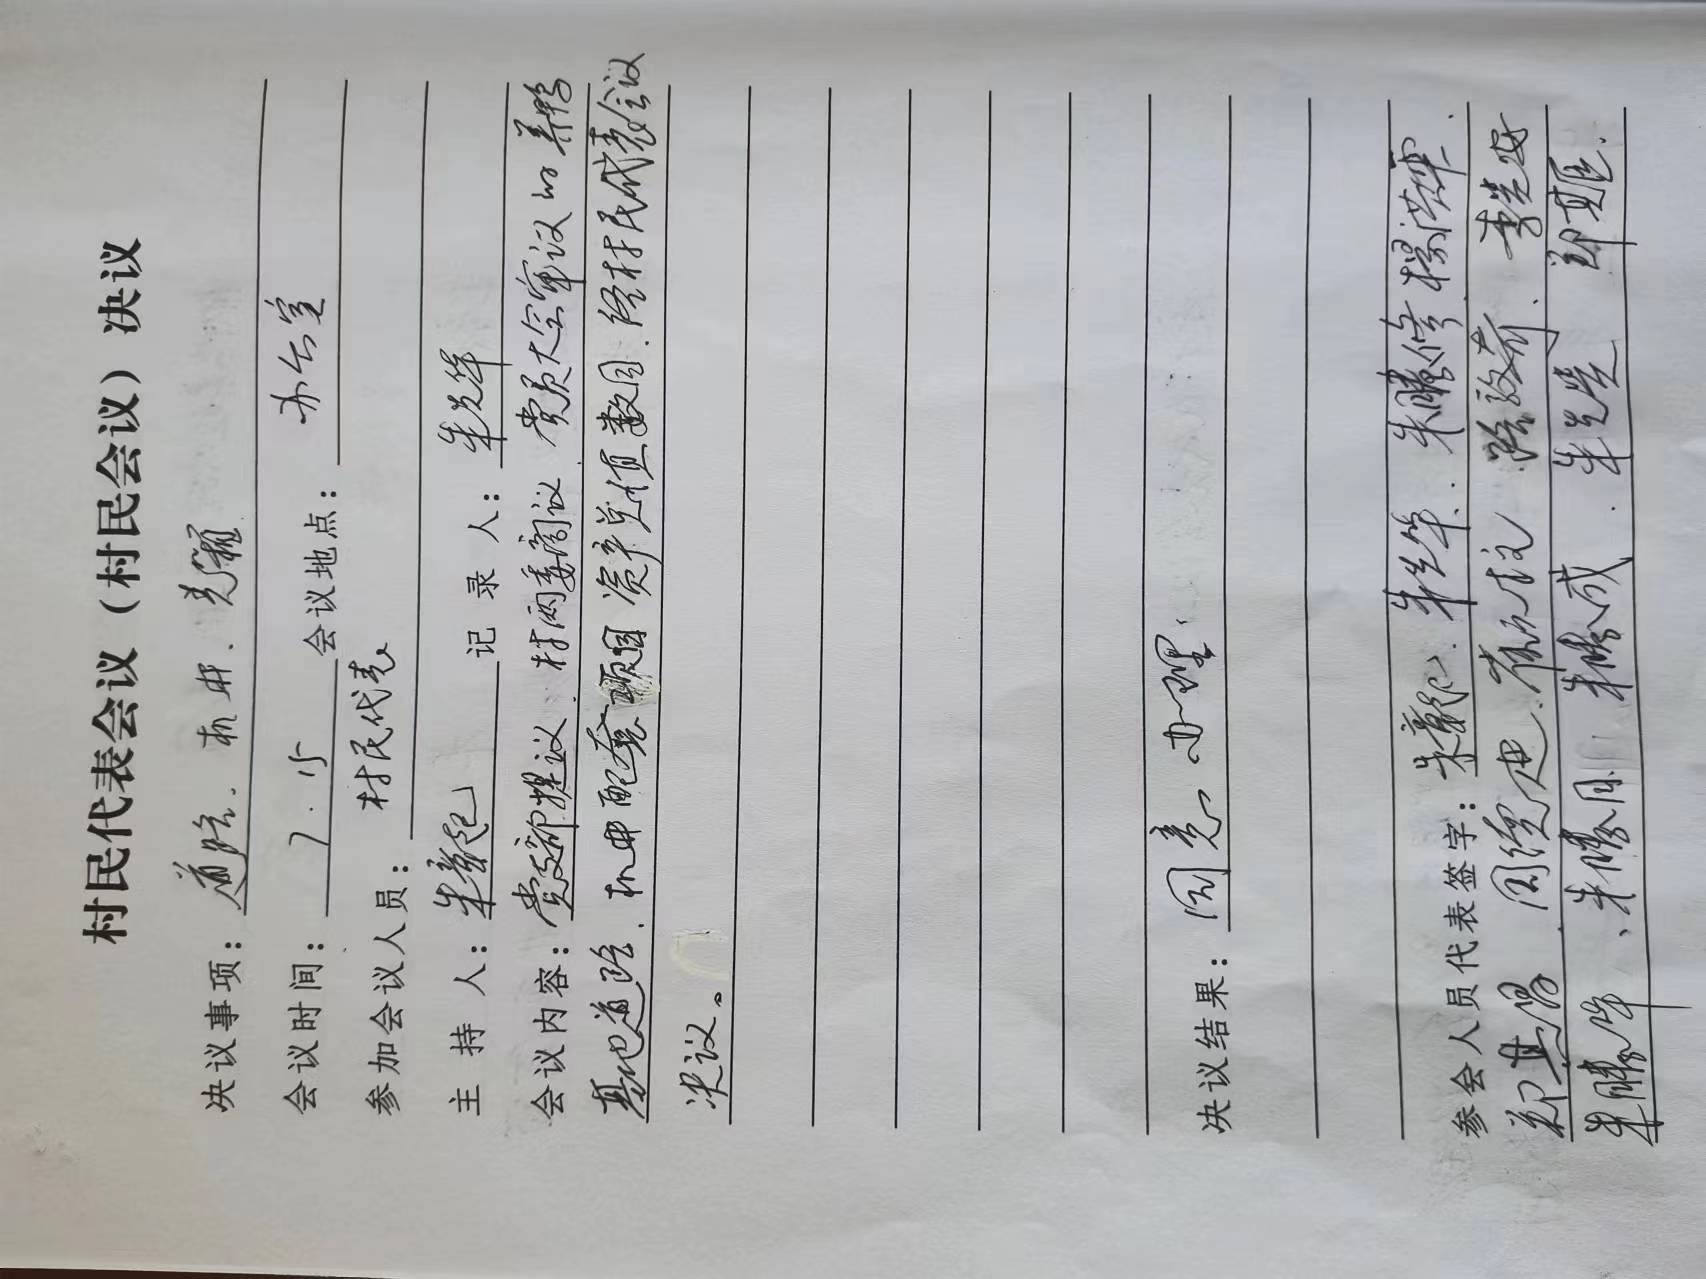 村民代表会议（村民会议）决议
决议事项：道路、机井、
会议时间：7.15 会议地点：办公室
参加会议人员：村民代表
主持人：朱章起 记录人：朱光华
会议内容：党支部提议、村两委商议、党员大会审议的养鸭
基地道路、机井配套项目资产总值数目、经村民代表会议
决议。
决议结果：同意办理.
参会人员代表签字：朱章起、朱光华、朱腾修、杨洪
郑其昌、周德、崔元柱、路致、李光安
朱腾华、朱腾月、朱腾成、朱光贵 郑其